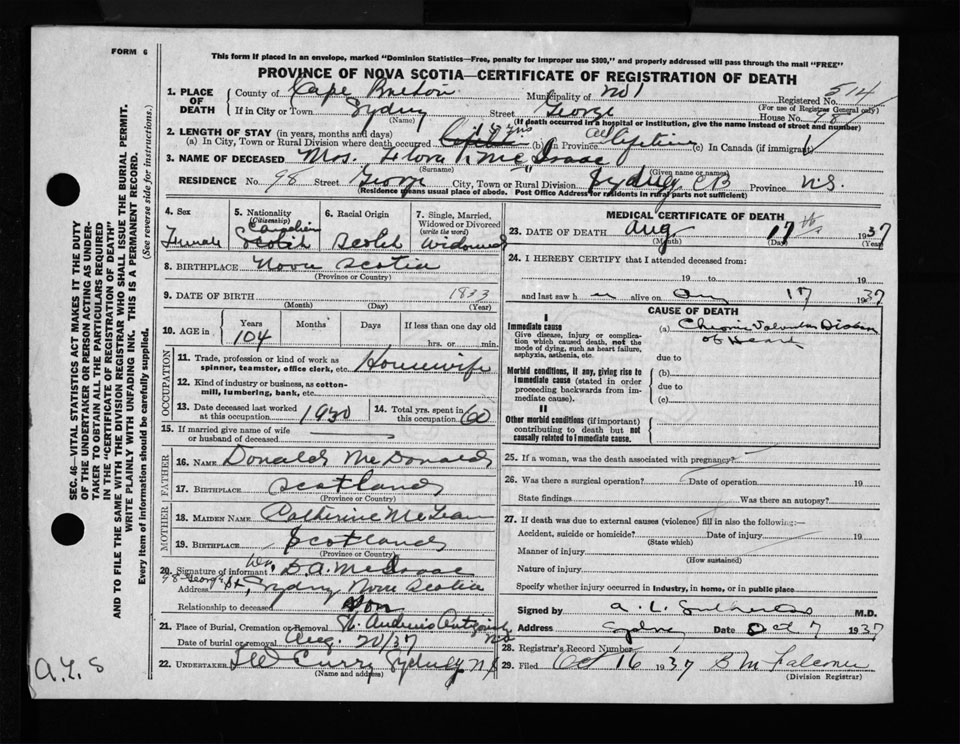 FORM 6
This form if placed in an envelope, marked "Dominion Statistics—Free, penalty for improper use $300," and properly addressed will pass through the mail "FREE"
PROVINCE OF NOVA SCOTIA—CERTIFICATE OF REGISTRATION OF DEATH
1. PLACE OF DEATH County of Cape Breton Municipality of No 1 Registered No. 514
(For use of Registrar General only)
If in City or Town Sydney Street George House No. 98
(Name) (If death occurred in a hospital or institution, give the name instead of street and number)
2. LENGTH OF STAY (in years, months and days)
(a) In City, Town or Rural Division where death occurred 14 yrs (b) in Province All Lifetime (c) In Canada (if immigrant)
3. NAME OF DECEASED Mrs. Flora McIsaac
(Surname) (Given name or names)
RESIDENCE No. 98 Street George City, Town or Rural Division Sydney CB Province N.S.
(Residence means usual place of abode. Post Office Address for residents in rural parts not sufficient)
4. Sex Female
5. Nationality (Citizenship) Canadian Scotch
6. Racial Origin Scotch
7. Single, Married, Widowed or Divorced (write the word) Widowed
8. BIRTHPLACE Nova Scotia
(Province or Country)
9. DATE OF BIRTH 1833
(Month) (Day) (Year)
10. AGE in Years 104 Months Days If less than one day old hrs. or min.
OCCUPATION
11. Trade, profession or kind of work as spinner, teamster, office clerk, etc. Housewife
12. Kind of industry or business, as cotton-mill, lumbering, bank, etc.
13. Date deceased last worked at this occupation 1930
14. Total yrs. spent in this occupation 60
15. If married give name of wife or husband of deceased
FATHER
16. NAME Donald McDonald
17. BIRTHPLACE Scotland
(Province or Country)
MOTHER
18. MAIDEN NAME Catherine McLean
19. BIRTHPLACE Scotland
(Province or Country)
20. Signature of informant D.A. McIsaac
Address 98 George St, Sydney Nova Scotia
Relationship to deceased Son
21. Place of Burial, Cremation or Removal St. Andrews Antigonish NS
Date of burial or removal Aug. 20/37
22. UNDERTAKER Curry Sydney N.S
(Name and address)
MEDICAL CERTIFICATE OF DEATH
23. DATE OF DEATH Aug 17th 1937
(Month) (Day) (Year)
24. I HEREBY CERTIFY that I attended deceased from:
19 to 19
and last saw h er alive on Aug 17 1937
CAUSE OF DEATH
I
Immediate cause
Give disease, injury or complication which caused death, not the mode of dying, such as heart failure, asphyxia, asthenia, etc.
(a) Chronic Valvular Disease of Heart
due to
Morbid conditions, if any, giving rise to immediate cause (stated in order proceeding backwards from immediate cause).
(b)
due to
(c)
II
Other morbid conditions (if important) contributing to death but not causally related to immediate cause.
25. If a woman, was the death associated with pregnancy?
26. Was there a surgical operation? Date of operation 19
State findings Was there an autopsy?
27. If death was due to external causes (violence) fill in also the following:—
Accident, suicide or homicide? Date of injury 19
(State which)
Manner of injury
(How sustained)
Nature of injury
Specify whether injury occurred in industry, in home, or in public place
Signed by A. L. M.D.
Address Sydney Date Oct 7 1937
28. Registrar's Record Number
29. Filed Oct 16 1937 B M Falconer
(Division Registrar)
SEC. 46—VITAL STATISTICS ACT MAKES IT THE DUTY OF THE UNDERTAKER OR PERSON ACTING AS UNDERTAKER TO OBTAIN ALL THE PARTICULARS REQUIRED IN THE "CERTIFICATE OF REGISTRATION OF DEATH" AND TO FILE THE SAME WITH THE DIVISION REGISTRAR WHO SHALL ISSUE THE BURIAL PERMIT.
WRITE PLAINLY WITH UNFADING INK. THIS IS A PERMANENT RECORD.
Every item of information should be carefully supplied. (See reverse side for instructions.)